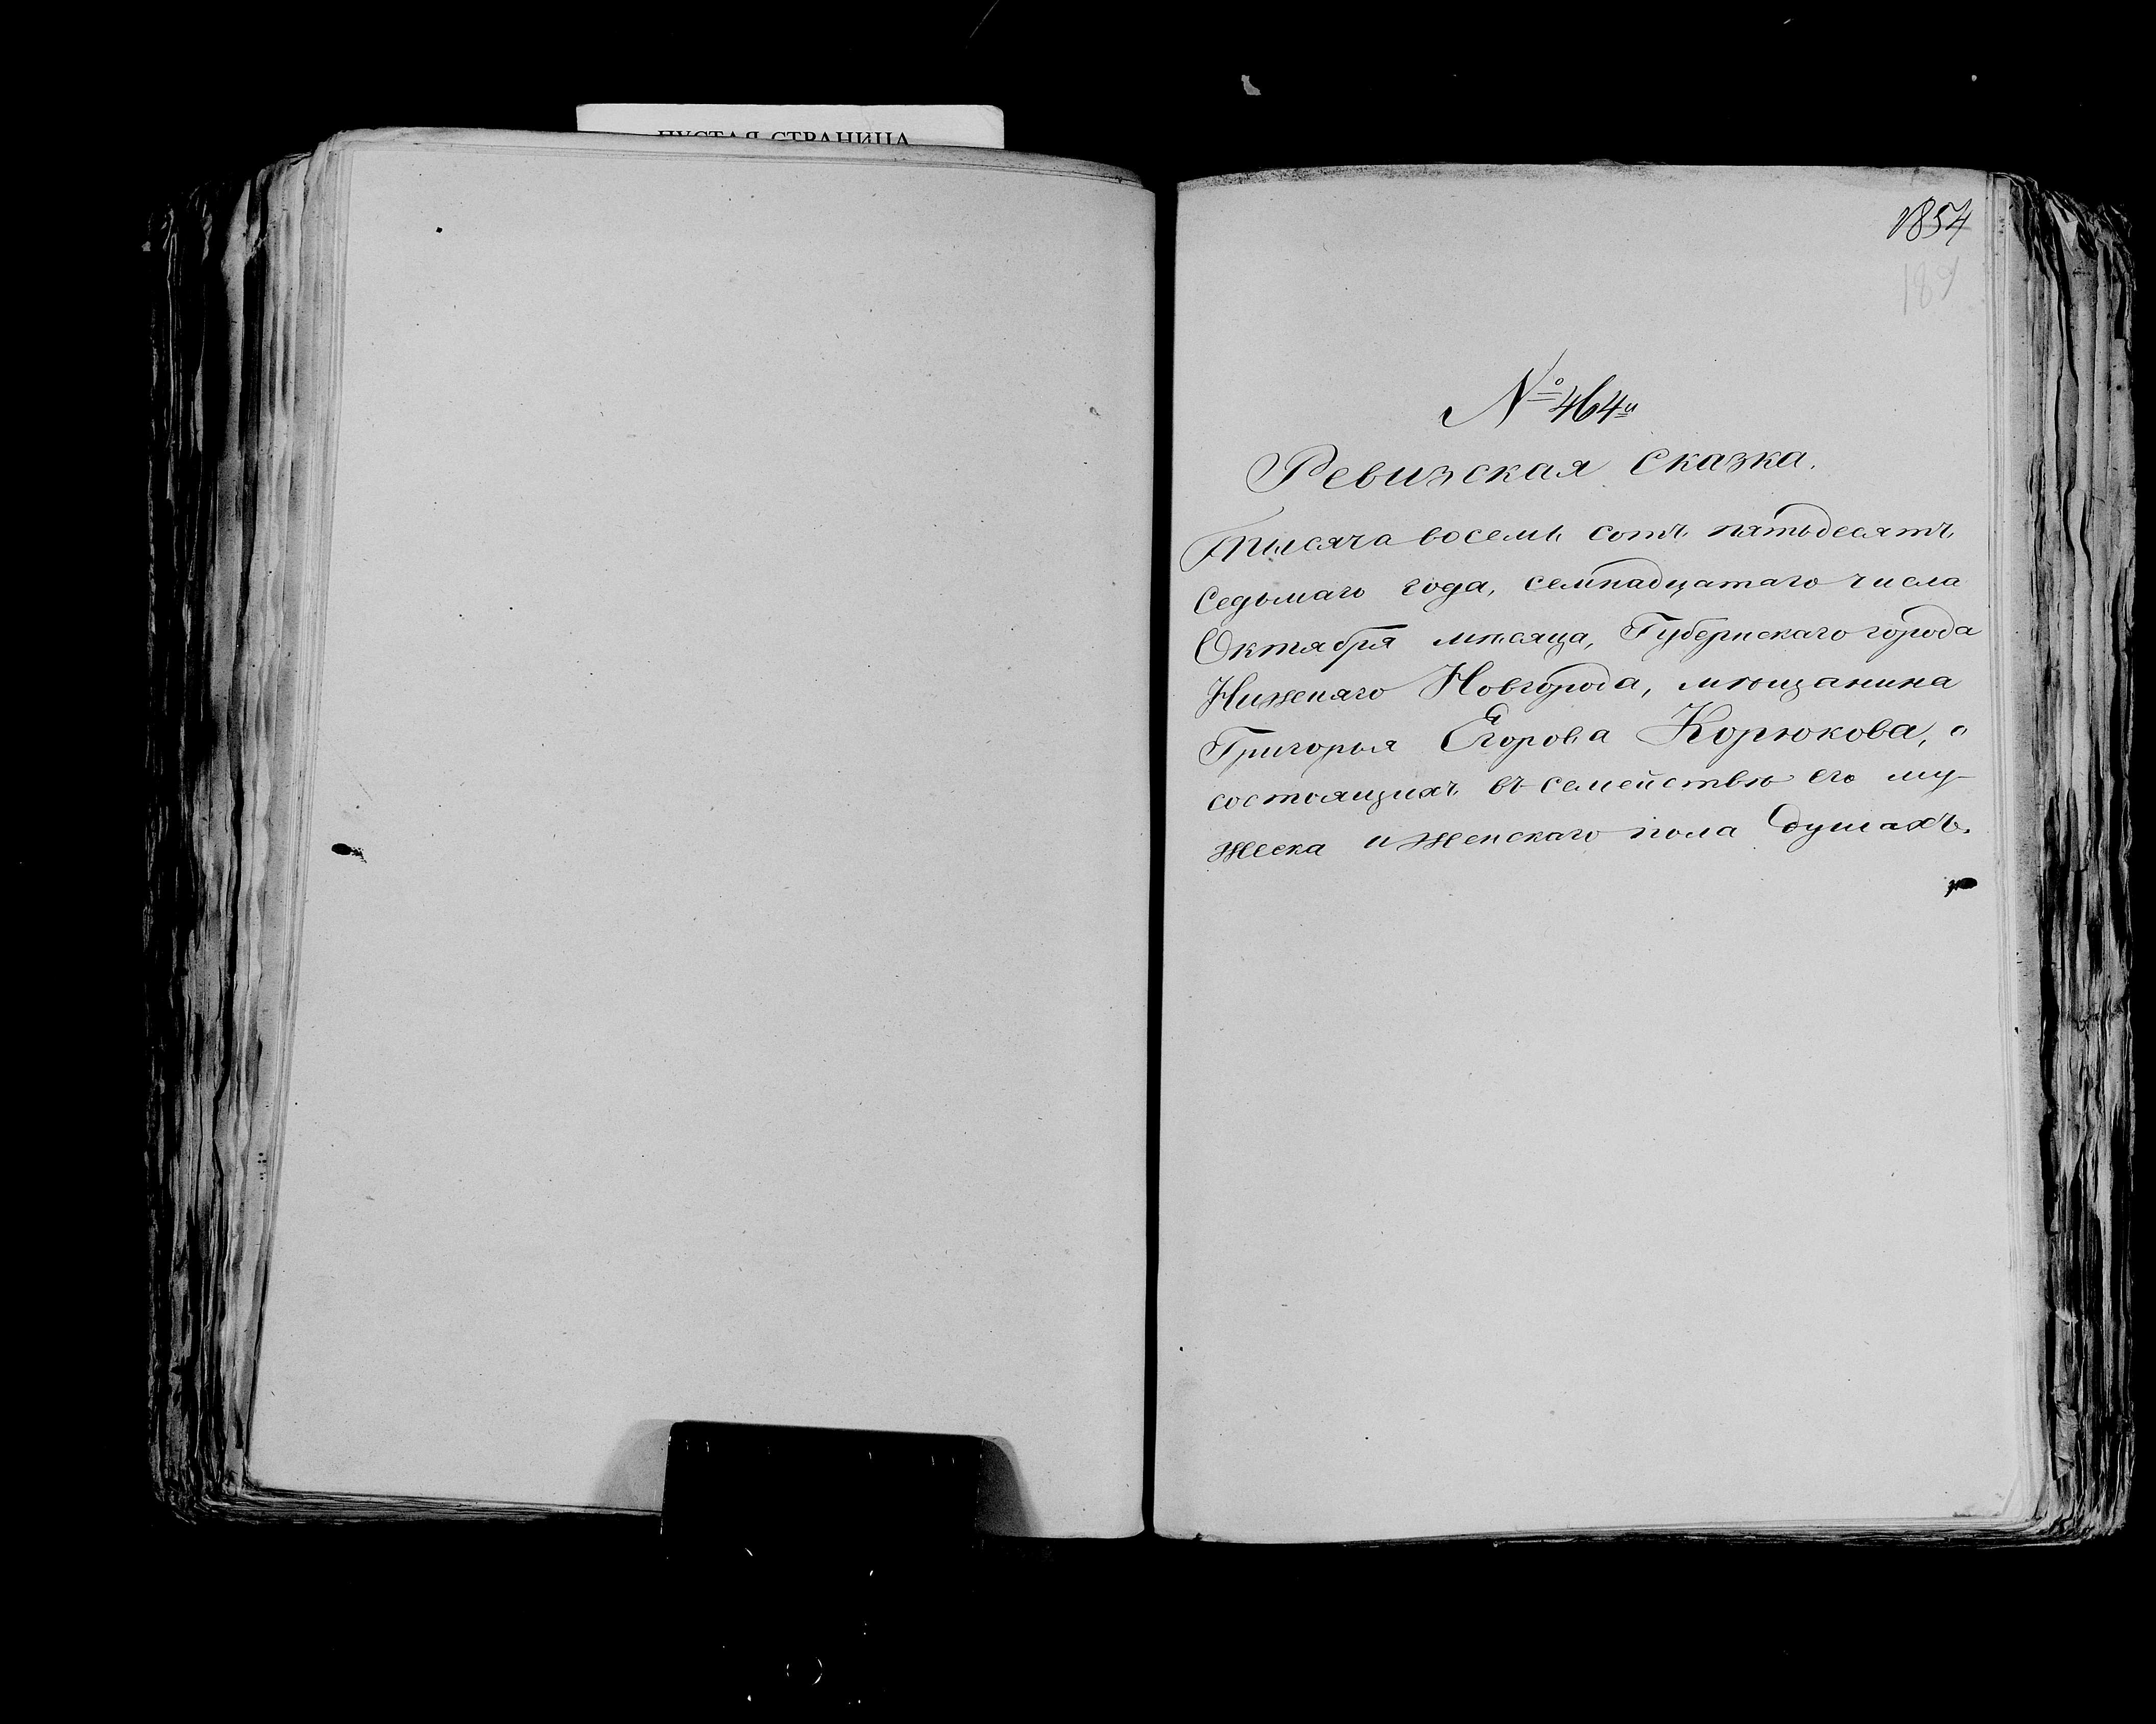 ПУСТАЯ СТРАНИЦА
1854
№ 464й
Ревизская сказка.
Тысяча восемь сотъ пятьдесятъ
седьмаго года, семнадцатаго числа
Октября мѣсяца, Губернскаго города
Нижняго Новгорода, мѣщанина
Григорья Егорова Корюкова, о
состоящихъ въ семействѣ его му-
жеска и женскаго пола душахъ.